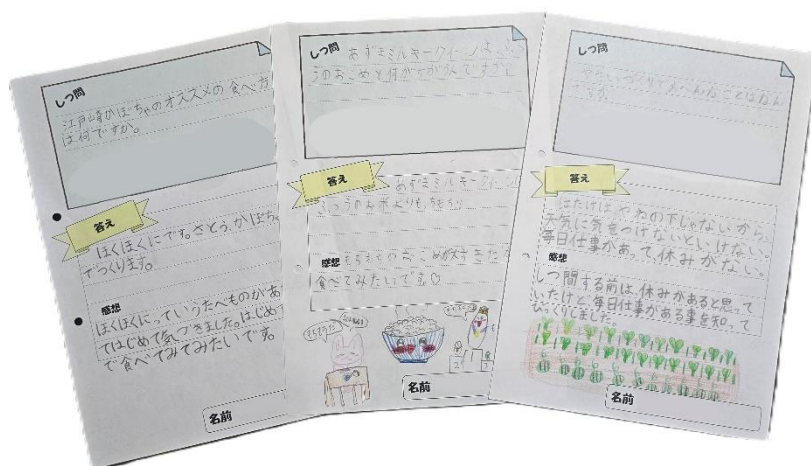 しつ問
江戸崎かぼちゃのオススメの食べ方
は何ですか。
答え
ほくほくにです。さとう、かぼち
でつくります。
感想
ほくほくにっていうたべものがあ
てはじめて気づきました。はじめ
で食べてみてみたいです。
名前
しつ問
あずまミルキークイーンは、
このおこめと何がちがうんですか。
答え
あずまミルキークイーン
ふつうのお米よりも、もちもち
感想
もちもちのおこめがすきだ
食べてみたいです♡
名前
しつ問
やさいづくりで大へんなことはなん
ですか。
答え
はたけはやねの下じゃないから、
天気に気をつけないといけない。
毎日仕事があって、休みがない。
感想
しつ問する前は、休みがあると思って
いたけど、毎日仕事がある事を知って
びっくりしました。
名前